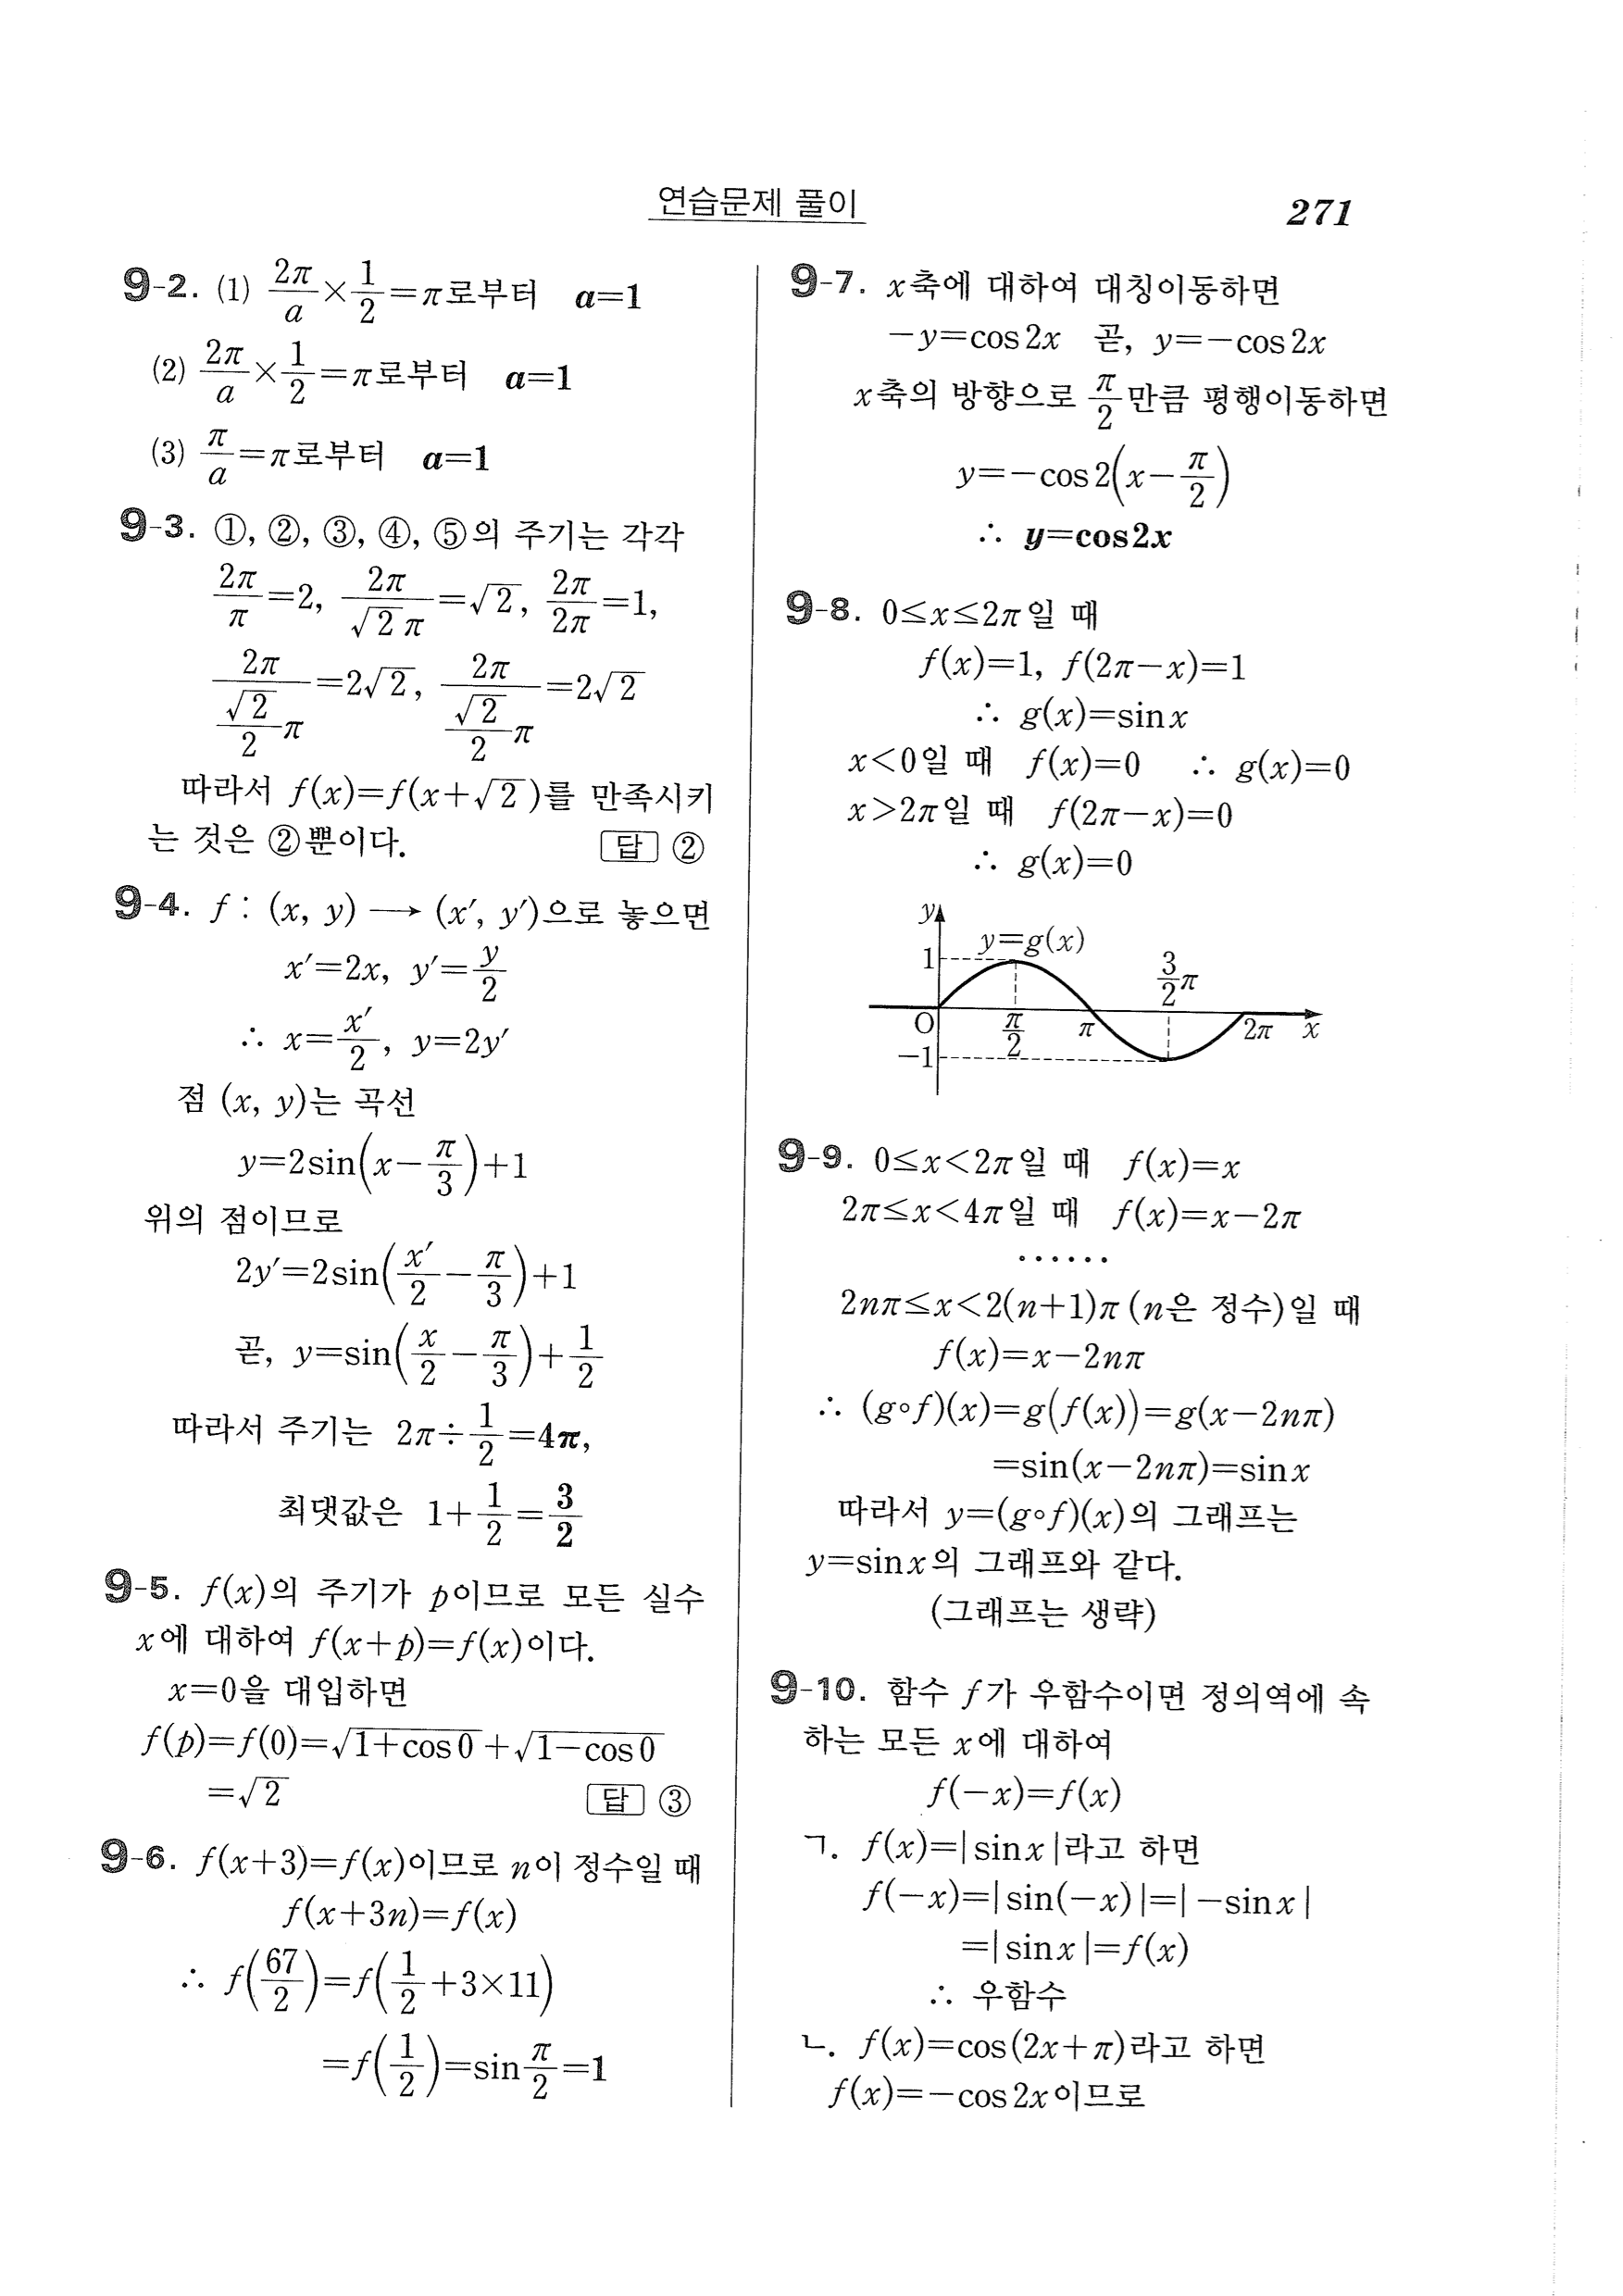 연습문제 풀이
271
9-2. (1) 2π/a × 1/2 = π로부터 a=1
(2) 2π/a × 1/2 = π로부터 a=1
(3) π/a = π로부터 a=1
9-3. ①, ②, ③, ④, ⑤의 주기는 각각
2π/π=2, 2π/(√2 π)=√2, 2π/2π=1,
2π/((√2/2)π)=2√2, 2π/((√2/2)π)=2√2
따라서 f(x)=f(x+√2)를 만족시키
는 것은 ②뿐이다. 답 ②
9-4. f : (x, y) ⟶ (x′, y′)으로 놓으면
x′=2x, y′=y/2
∴ x=x′/2, y=2y′
점 (x, y)는 곡선
y=2sin(x−π/3)+1
위의 점이므로
2y′=2sin(x′/2−π/3)+1
곧, y=sin(x/2−π/3)+1/2
따라서 주기는 2π÷1/2=4π,
최댓값은 1+1/2=3/2
9-5. f(x)의 주기가 p이므로 모든 실수
x에 대하여 f(x+p)=f(x)이다.
x=0을 대입하면
f(p)=f(0)=√(1+cos0)+√(1−cos0)
=√2 답 ③
9-6. f(x+3)=f(x)이므로 n이 정수일 때
f(x+3n)=f(x)
∴ f(67/2)=f(1/2+3×11)
=f(1/2)=sin π/2=1
9-7. x축에 대하여 대칭이동하면
−y=cos2x 곧, y=−cos2x
x축의 방향으로 π/2만큼 평행이동하면
y=−cos2(x−π/2)
∴ y=cos2x
9-8. 0≤x≤2π일 때
f(x)=1, f(2π−x)=1
∴ g(x)=sinx
x<0일 때 f(x)=0 ∴ g(x)=0
x>2π일 때 f(2π−x)=0
∴ g(x)=0
y
y=g(x)
1
3/2 π
O π/2 π 2π x
−1
9-9. 0≤x<2π일 때 f(x)=x
2π≤x<4π일 때 f(x)=x−2π
······
2nπ≤x<2(n+1)π (n은 정수)일 때
f(x)=x−2nπ
∴ (g∘f)(x)=g(f(x))=g(x−2nπ)
=sin(x−2nπ)=sinx
따라서 y=(g∘f)(x)의 그래프는
y=sinx의 그래프와 같다.
(그래프는 생략)
9-10. 함수 f가 우함수이면 정의역에 속
하는 모든 x에 대하여
f(−x)=f(x)
ㄱ. f(x)=|sinx|라고 하면
f(−x)=|sin(−x)|=|−sinx|
=|sinx|=f(x)
∴ 우함수
ㄴ. f(x)=cos(2x+π)라고 하면
f(x)=−cos2x이므로